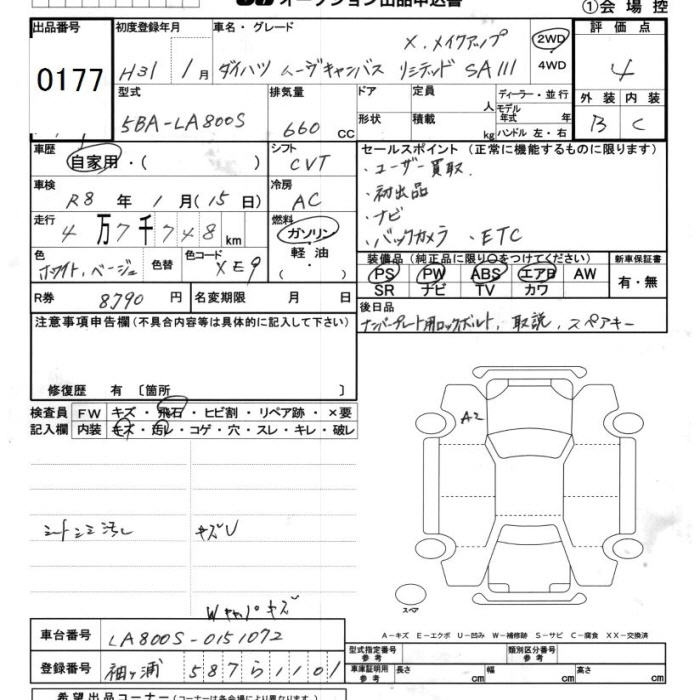 オークション出品申込書
①会場控
出品番号 初度登録年月 車名・グレード 評価点
0177 H31 1月 ダイハツ ムーヴキャンバス リミテッド SAIII
X.メイクアップ 2WD 4WD 4
型式 排気量 ドア 定員 ディーラー・並行 外装 内装
5BA-LA800S 660 CC 形状 積載 人 kg モデル年式 年 ハンドル 左・右 B C
車歴 シフト セールスポイント (正常に機能するものに限ります)
自家用・( ) CVT ・ユーザー買取.
車検 冷房 ・初出品
R8 年 1 月(15 日) AC ・ナビ
走行 燃料 ・バックカメラ ・ETC
4万7千748km ガソリン・軽油・( )
色 色替 色コード 装備品(純正品に限り○をつけてください) 新車保証書
ホワイト.ベージュ XE9 PS PW ABS エアB AW 有・無
SR ナビ TV カワ
R券 8790 円 名変期限 月 日 後日品
注意事項申告欄(不具合内容等は具体的に記入して下さい) ナンバープレート用ロックボルト. 取説. スペアキー
修復歴 有 〔箇所 〕
検査員 FW キズ・飛石・ヒビ割・リペア跡・×要
記入欄 内装 キズ・汚レ・コゲ・穴・スレ・キレ・破レ
A2
シートシミ汚レ キズU
Wキャパキズ
スペア
A-キズ E-エクボ U-凹み W-補修跡 S-サビ C-腐食 XX-交換済
車台番号 LA800S-0151072
型式指定番号 参考 類別区分番号 参考
登録番号 袖ヶ浦 587 ら 1101
車庫証明用 参考 長さ cm 幅 cm 高さ cm
希望出品コーナー(コーナーは各会場により異なります)